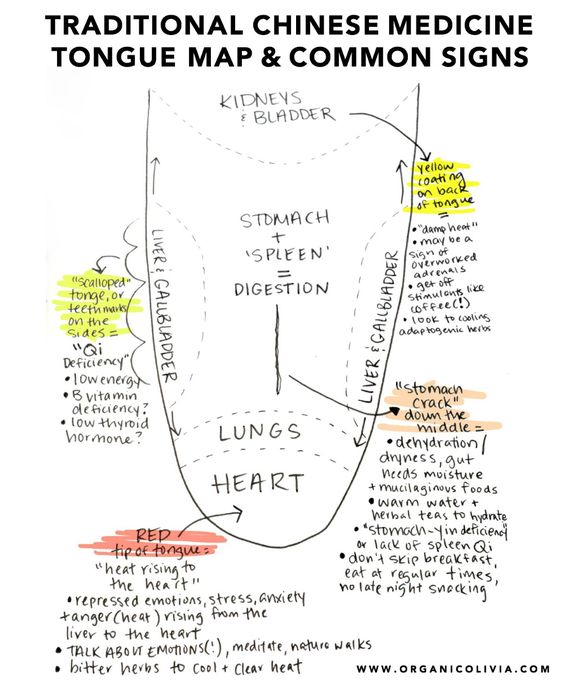 TRADITIONAL CHINESE MEDICINE
TONGUE MAP & COMMON SIGNS
KIDNEYS
& BLADDER
yellow
coating
on back
of tongue
=
• "damp heat"
• may be a
sign of
overworked
adrenals
• get off
stimulants like
coffee(!)
• look to cooling
adaptogenic herbs
STOMACH
+
'SPLEEN'
=
DIGESTION
LIVER & GALLBLADDER
LIVER & GALLBLADDER
"scalloped"
tonge, or
teeth marks
on the
sides =
"Qi
Deficiency"
• low energy
• B vitamin
deficiency?
• low thyroid
hormone?
"stomach
crack"
down the
middle =
• dehydration/
dryness, gut
needs moisture
+ mucilaginous foods
• warm water +
herbal teas to hydrate
• "stomach-yin deficiency"
or lack of spleen Qi
• don't skip breakfast,
eat at regular times,
no late night snacking
LUNGS
HEART
RED
tip of tongue =
"heat rising to
the heart"
• repressed emotions, stress, anxiety
+ anger (heat) rising from the
liver to the heart
• TALK ABOUT EMOTIONS(!), meditate, nature walks
• bitter herbs to cool + clear heat
WWW.ORGANICOLIVIA.COM